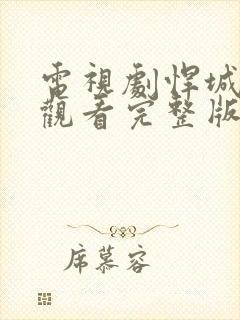 電視劇悍城
觀看完整版
席慕容